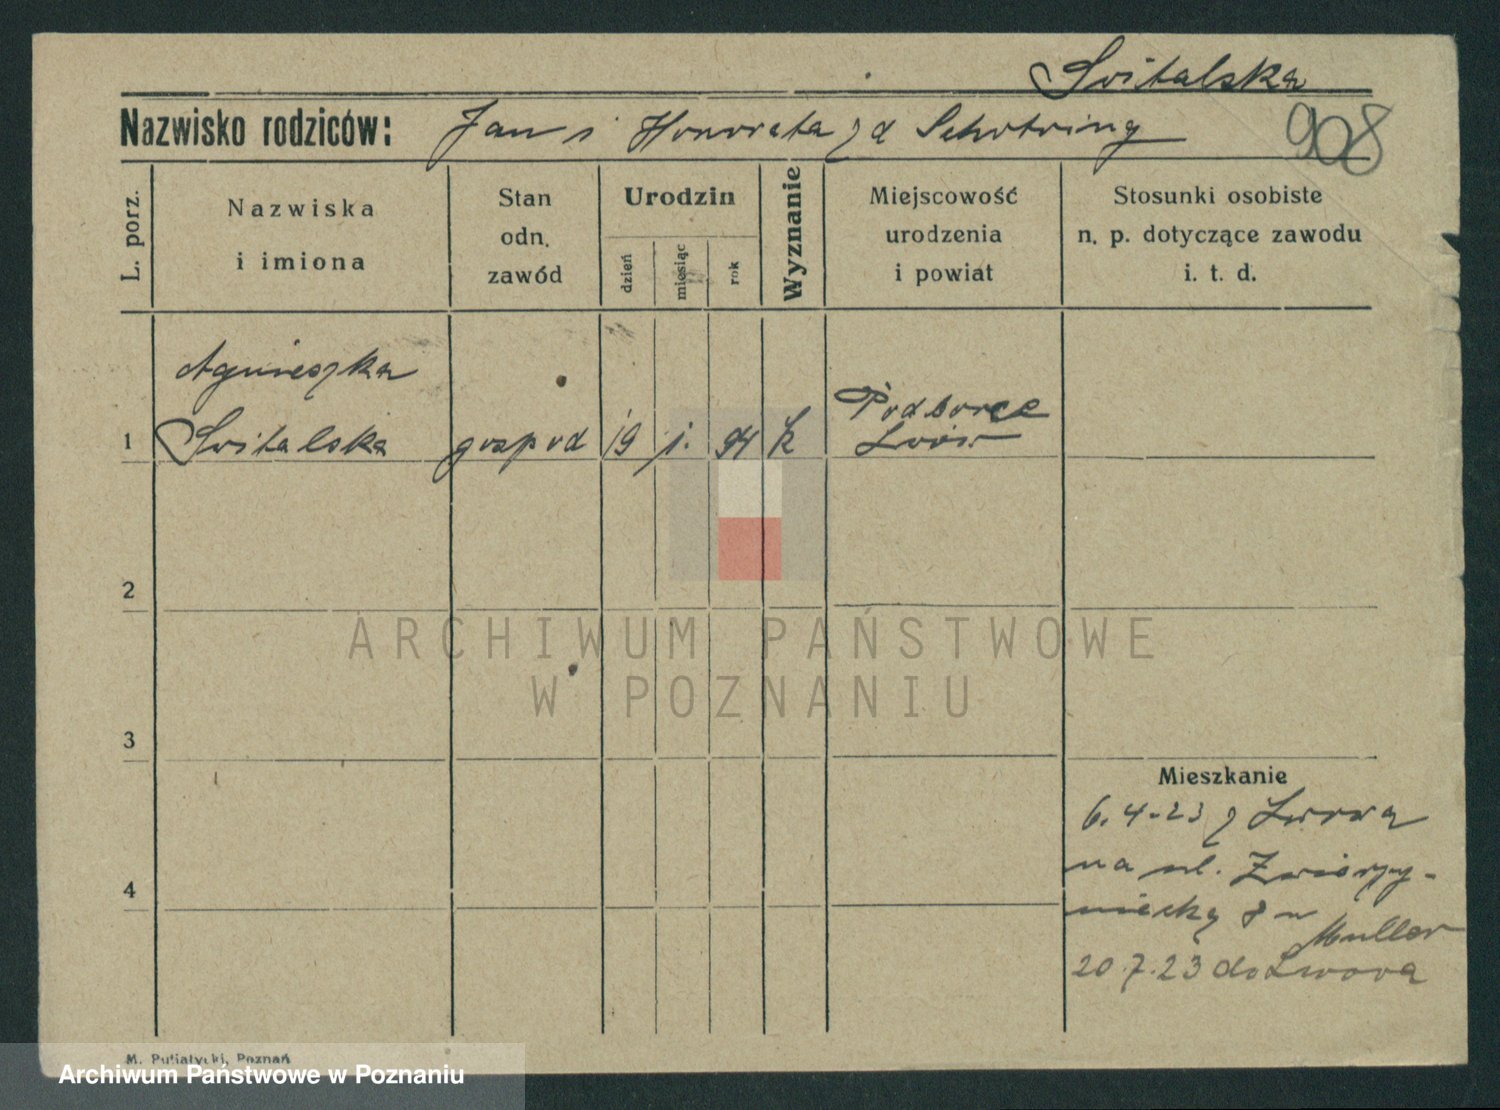 Switalska
Nazwisko rodziców: Jan i Honorata zd Schotring
908
L. porz.
Nazwiska
i imiona
Stan
odn.
zawód
Urodzin
dzień
miesiąc
rok
Wyznanie
Miejscowość
urodzenia
i powiat
Stosunki osobiste
n. p. dotyczące zawodu
i. t. d.
Agnieszka
1 Switalska gospod 19 1. 94 k
Podborce
Lwów
2
ARCHIWUM PAŃSTWOWE
W POZNANIU
3
Mieszkanie
6.4-23 z Lwowa
na ul. Zwierzy-
4
niecką 8 u
Muller
20.7.23 do Lwowa
M. Putiatycki, Poznań
Archiwum Państwowe w Poznaniu